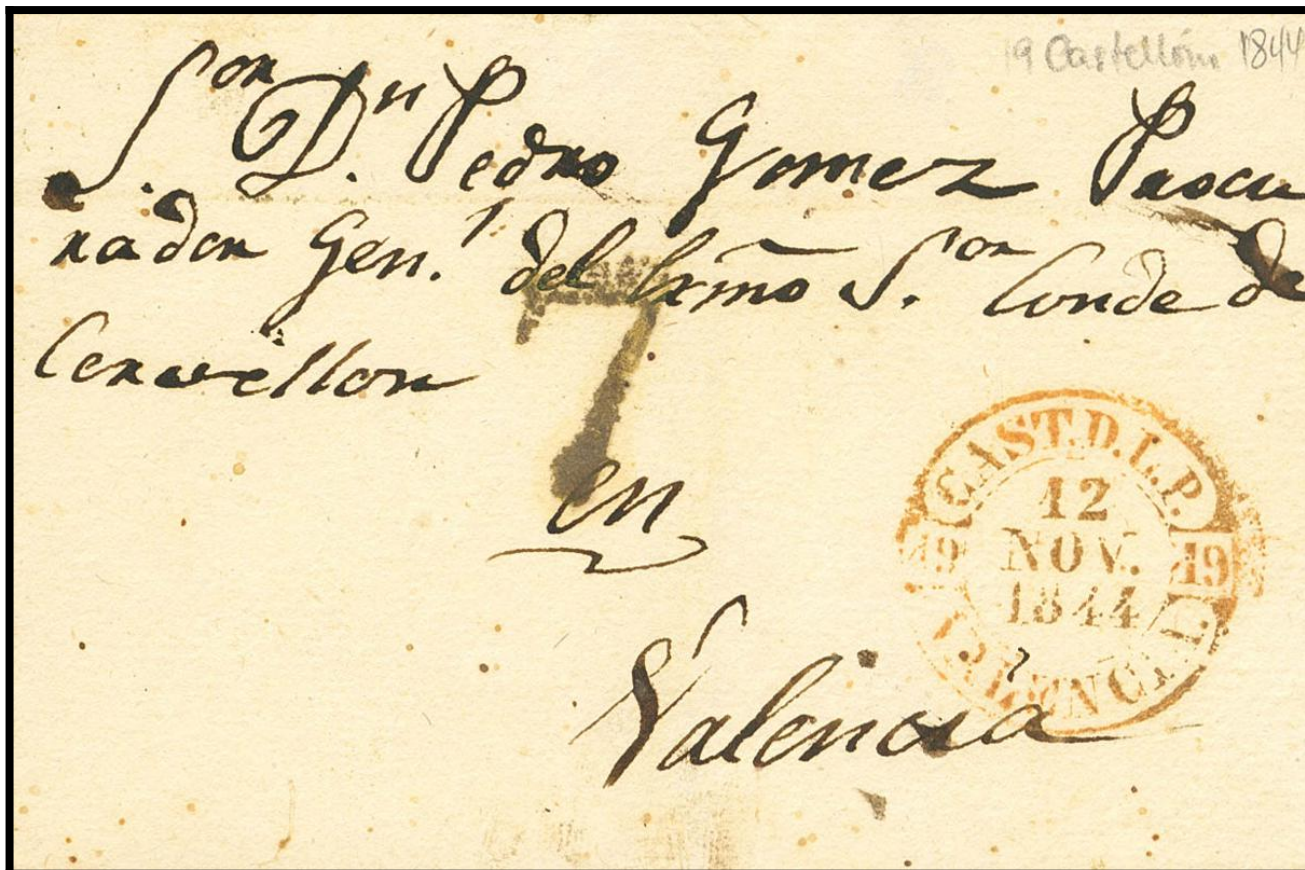 19 Castellón 1844
S.or D.n Pedro Gomez Procu
rador Gen.l del Exmo S.or Conde de
Cervellon
7
en
Valencia
CAST. D. L. P.
19 12 19
NOV.
1844
VALENCIA.